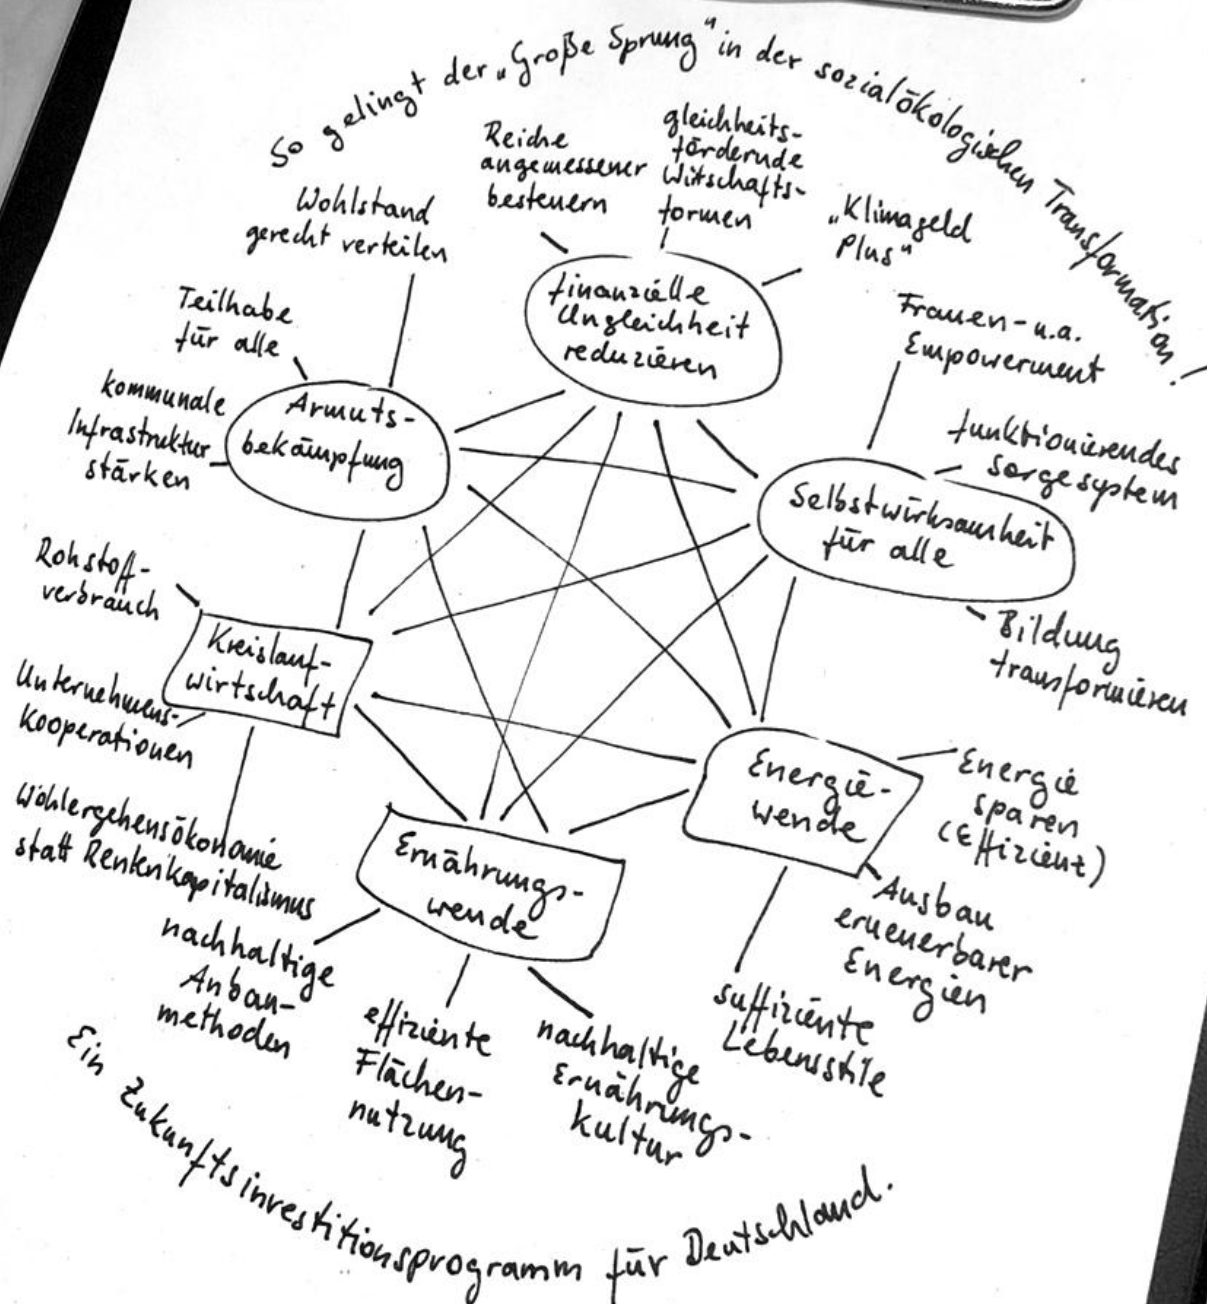 So gelingt der „Große Sprung" in der sozialökologischen Transformation!
Reiche
angemessener
besteuern
gleichheits-
fördernde
Witschafts-
formen
„Klimageld
Plus"
Wohlstand
gerecht verteilen
Teilhabe
für alle
kommunale
Infrastruktur
stärken
finanzielle
Ungleichheit
reduzieren
Frauen- u.a.
Empowerment
funktionierendes
Sorgesystem
Armuts-
bekämpfung
Selbstwirksamkeit
für alle
Bildung
transformieren
Rohstoff-
verbrauch
Kreislauf-
wirtschaft
Unternehmens-
Kooperationen
Wohlergehensökonomie
statt Rentenkapitalismus
Energie-
wende
Energie
sparen
(Effizienz)
Ausbau
erneuerbarer
Energien
suffiziente
Lebensstile
Ernährungs-
wende
nachhaltige
Anbau-
methoden
effiziente
Flächen-
nutzung
nachhaltige
Ernährungs-
kultur
Ein Zukunftsinvestitionsprogramm für Deutschland.